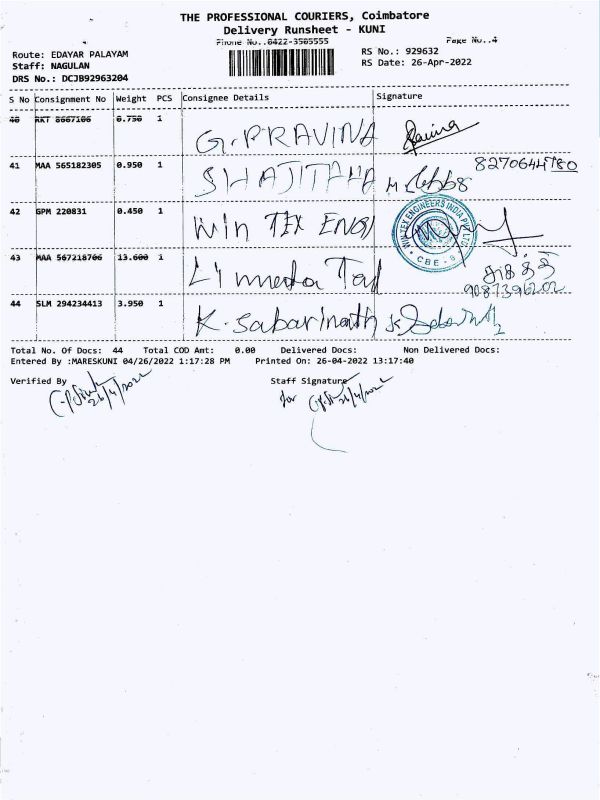 THE PROFESSIONAL COURIERS, Coimbatore
Delivery Runsheet - KUNI
Phone No..0422-3505555
Page No..4
Route: EDAYAR PALAYAM
Staff: NAGULAN
DRS No.: DCJB92963204
RS No.: 929632
RS Date: 26-Apr-2022
S No Consignment No Weight PCS Consignee Details Signature
40 RKT 8667106 0.750 1 G.PRAVINA
41 MAA 565182305 0.950 1 SHAJITHA 8270644780
42 GPM 220831 0.450 1 Win TEX ENGG
WIN TEX ENGINEERS INDIA PVT LTD
CBE
43 MAA 567218706 13.600 1
9087396202
44 SLM 294234413 3.950 1 K. Sabarinath
Total No. Of Docs: 44 Total COD Amt: 0.00 Delivered Docs: Non Delivered Docs:
Entered By :MARESKUNI 04/26/2022 1:17:28 PM Printed On: 26-04-2022 13:17:40
Verified By
26/4/2022
Staff Signature
for 26/4/2022